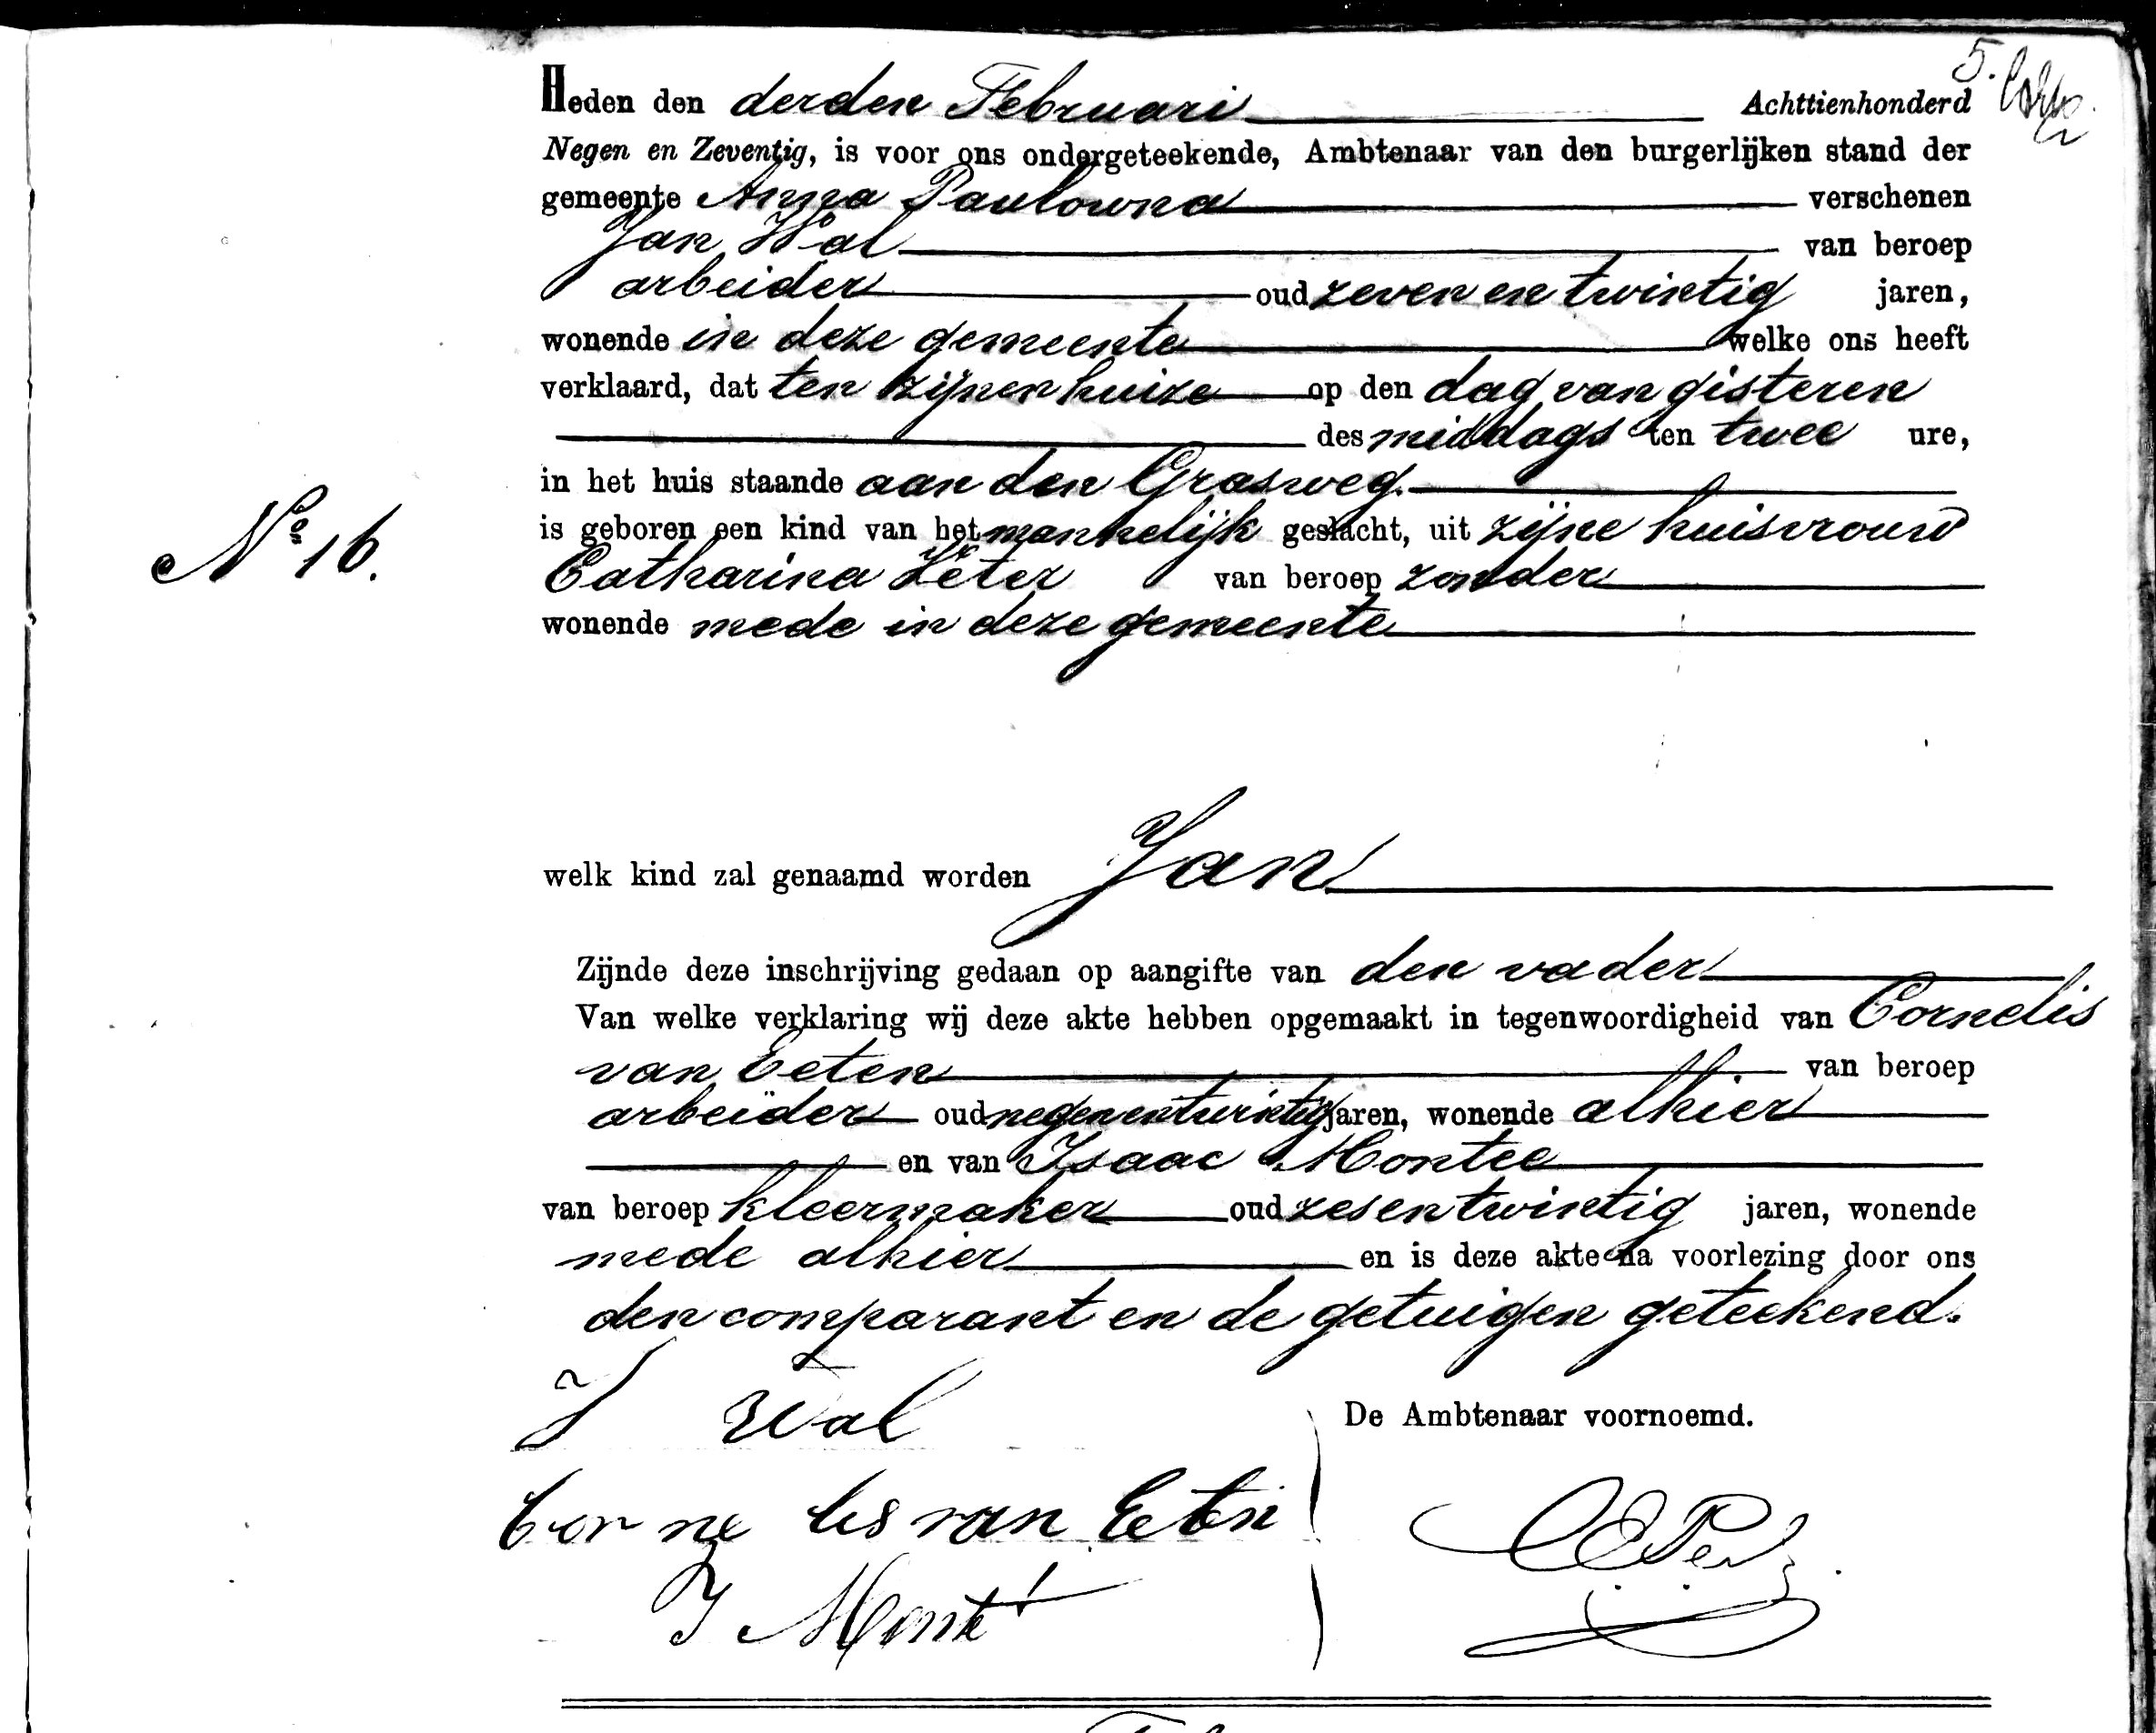 5.
Heden den derden Februari Achttienhonderd
Negen en Zeventig, is voor ons ondergeteekende, Ambtenaar van den burgerlijken stand der
gemeente Anna Paulowna verschenen
Jan Wal van beroep
arbeider oud zeven en twintig jaren,
wonende in deze gemeente welke ons heeft
verklaard, dat ten zijnen huize op den dag van gisteren
des middags ten twee ure,
in het huis staande aan den Grasweg.
No 16.
is geboren een kind van het mannelijk geslacht, uit zijne huisvrouw
Catharina van beroep zonder
wonende mede in deze gemeente
welk kind zal genaamd worden Jan
Zijnde deze inschrijving gedaan op aangifte van den vader
Van welke verklaring wij deze akte hebben opgemaakt in tegenwoordigheid van Cornelis
van Eeten van beroep
arbeider oud negenentwintig jaren, wonende alhier
en van Isaac Montee
van beroep kleermaker oud zesentwintig jaren, wonende
mede alhier en is deze akte na voorlezing door ons
den comparant en de getuigen geteekend.
J Wal
De Ambtenaar voornoemd.
Cor ne lis van Eeten